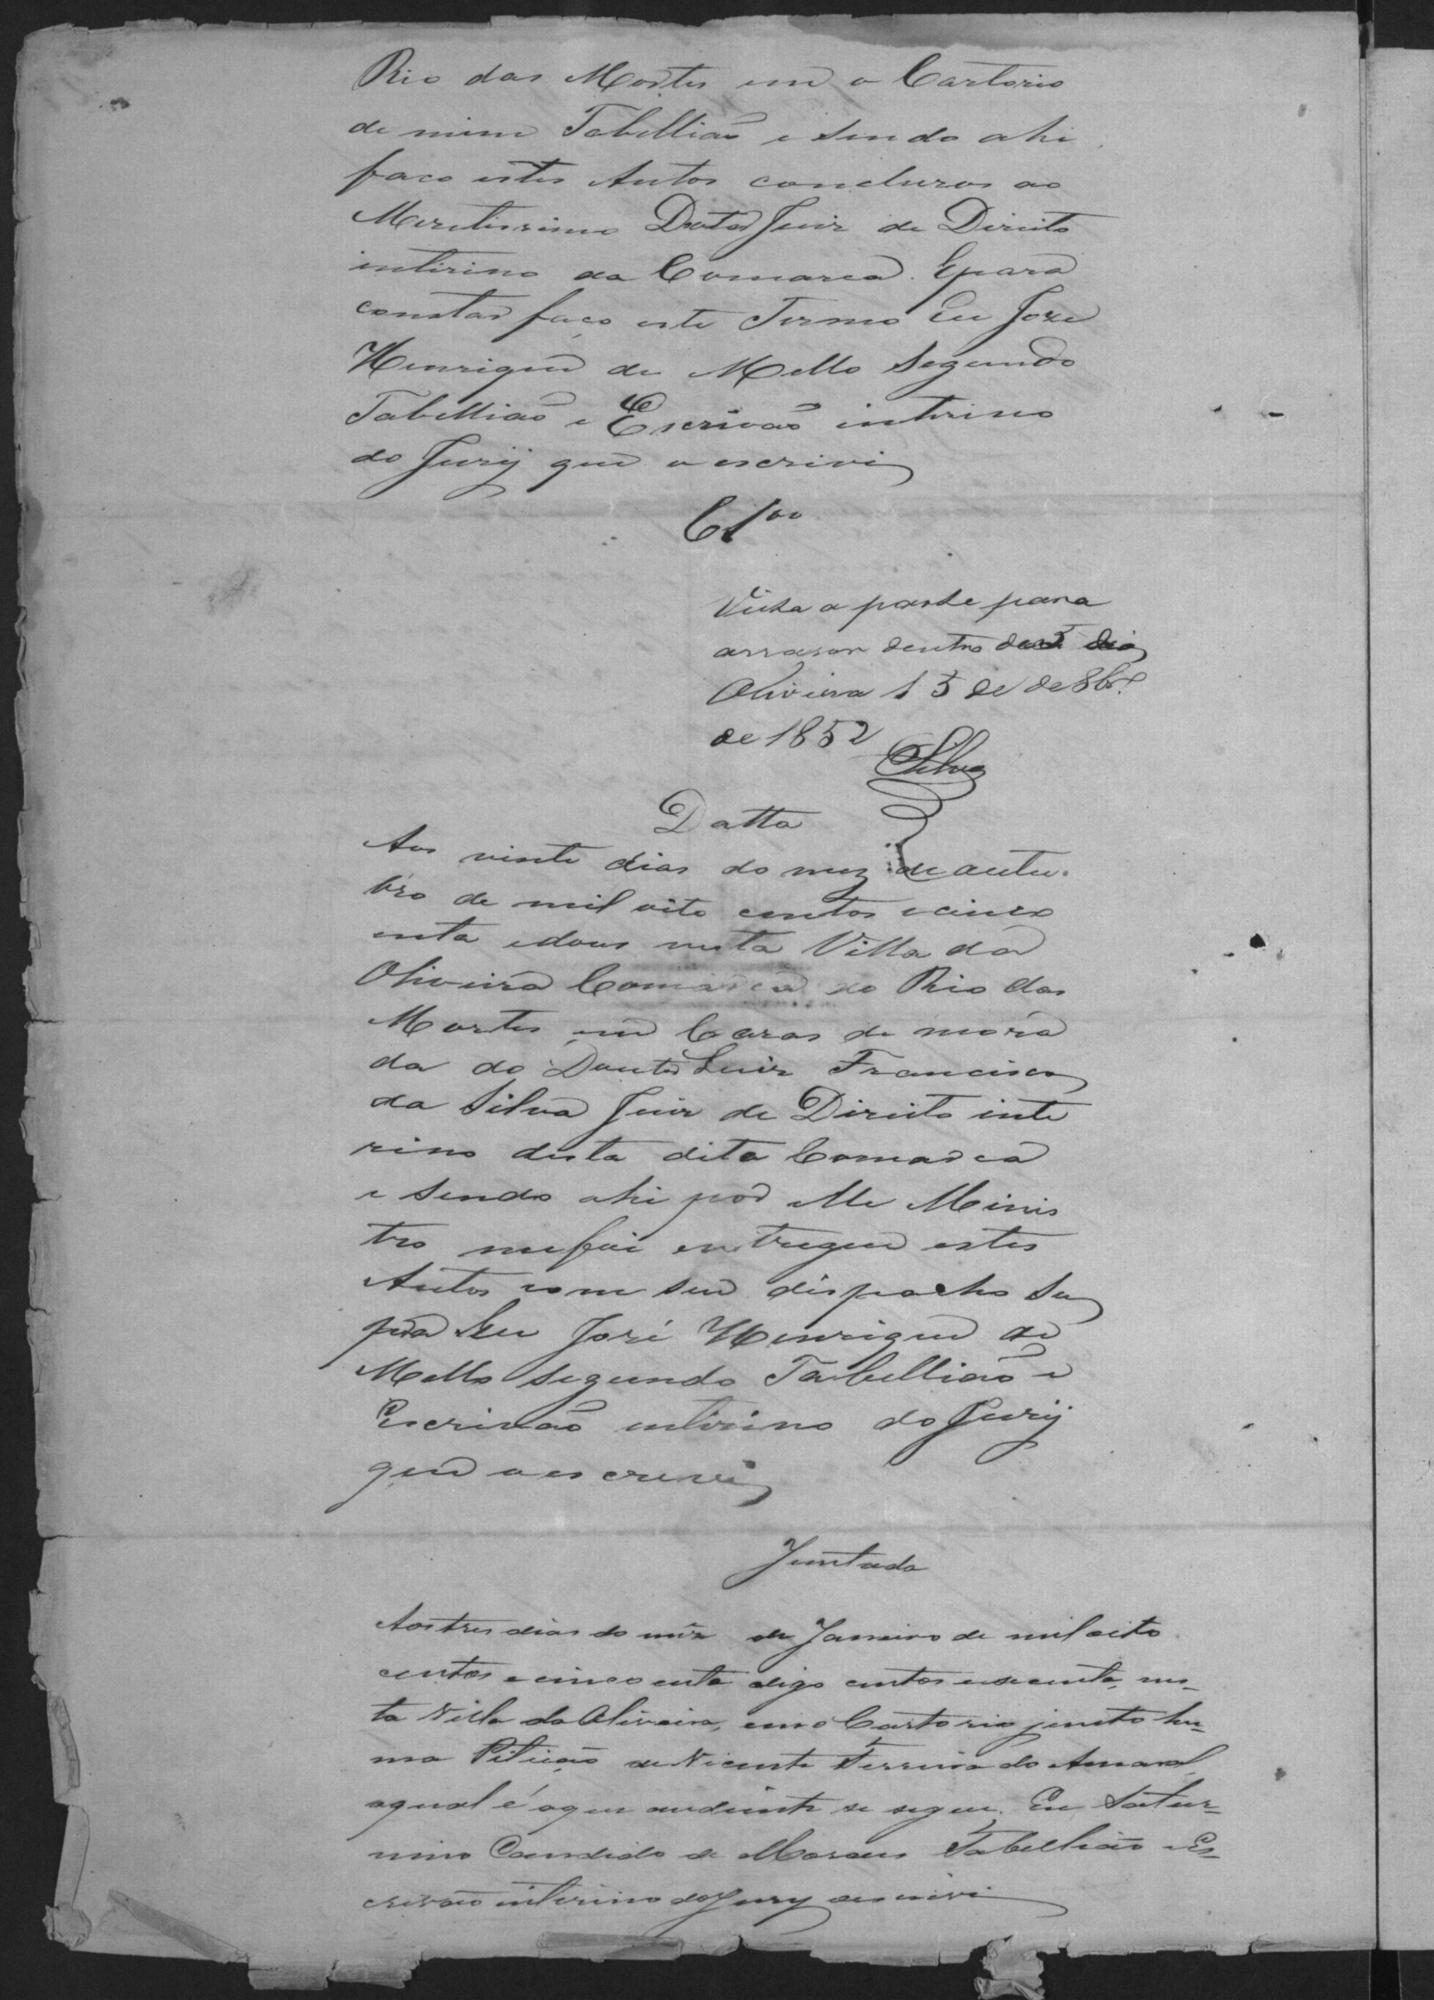 Rio das Mortes em o Cartorio
de mim Tabellião e sendo ahi
faco estes Autos concluzos ao
Meretissimo Doutor Juiz de Direito
intirino da Comarca. Epara
constar faço este Termo Eu Joze
Henrique de Mello Segundo
Tabellião e Escrivão interino
do Jury que o escrivi
Clºº
Vista a parte para
arrasoar dentro de 5 dias
Oliveira 15 de 8br.º
de 1852
Silva
Datta
Aos vinte dias do mez de autu-
bro de mil oito centos e cinco
enta e dous nesta Villa da
Oliveira Comarca do Rio das
Mortes em Cazas de mora
da do Doutor Luiz Francisco
da Silva Juiz de Direito inte
rino desta dita Comarca
e sendo ahi por elle Minis
tro me foi entregue estes
Autos com seu dispacho su
pra Eu José Henrique de
Mello segundo Tabellião e
Escrivão intirino do Jury
que o escrevi
Juntada
Aos tres dias do mez de Janeiro de mil oito
centos e cincoenta digo centos e secenta, nes-
ta Villa da Oliveira, em o Cartorio junto hu-
ma Petição de Vicente Ferreira do Amaral
aqual é aque audiante se segue. Eu Satur-
nino Candido de Moraes Tabellião e Es-
crivão interino do Jury o escrivi